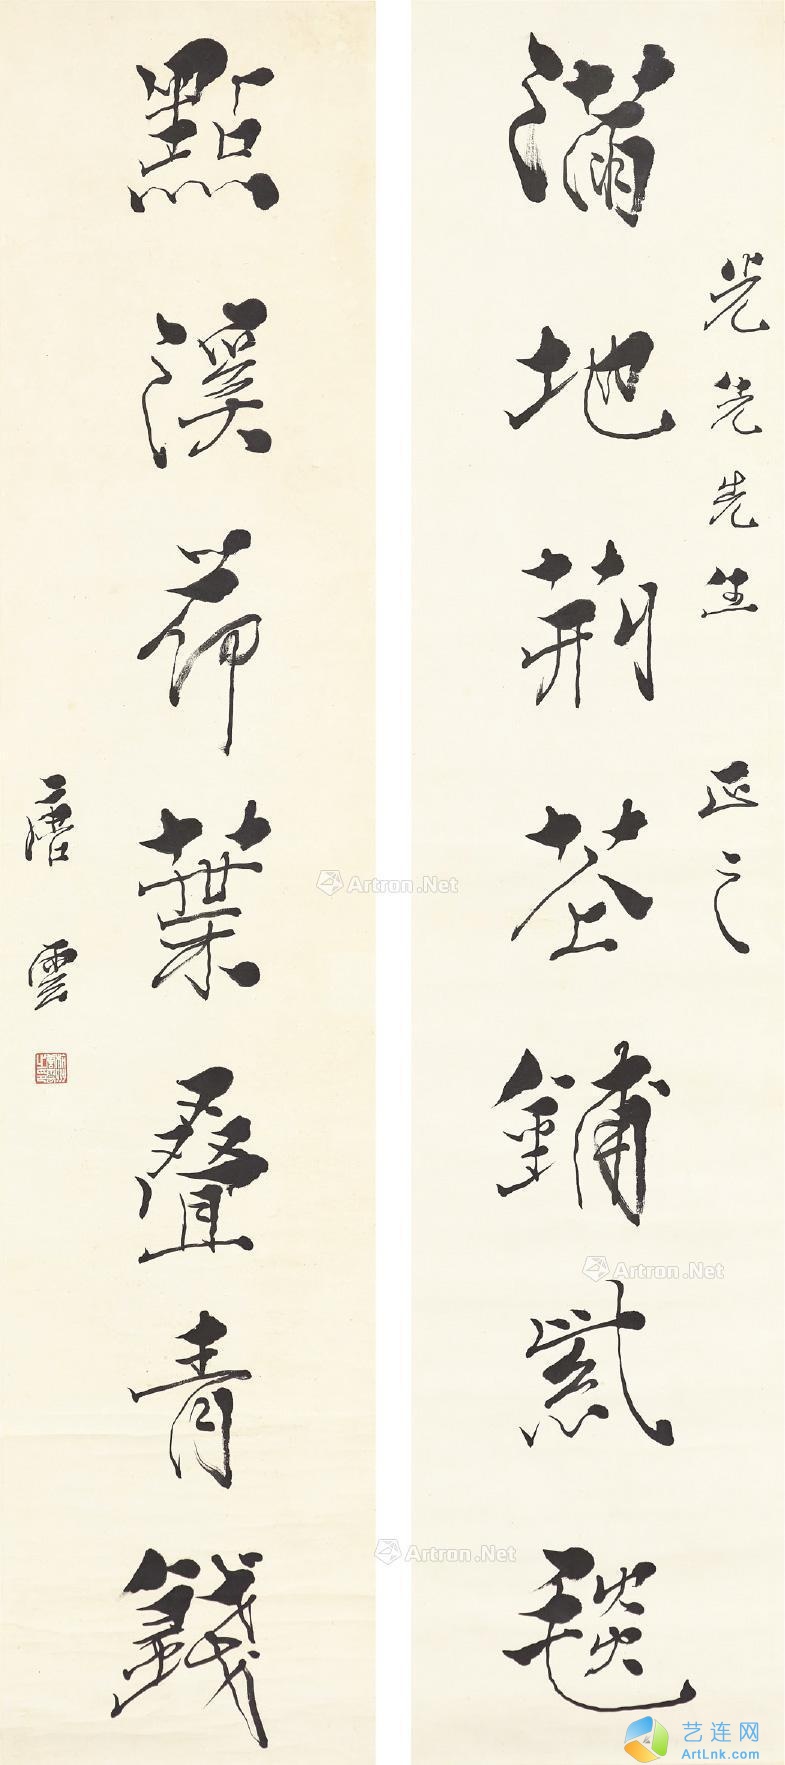 滿地荊荃鋪紫毯
先生 正之
點溪荷葉叠青錢
唐雲
Artron.Net
Artron.Net
Artron.Net
艺连网
ArtLnk.com